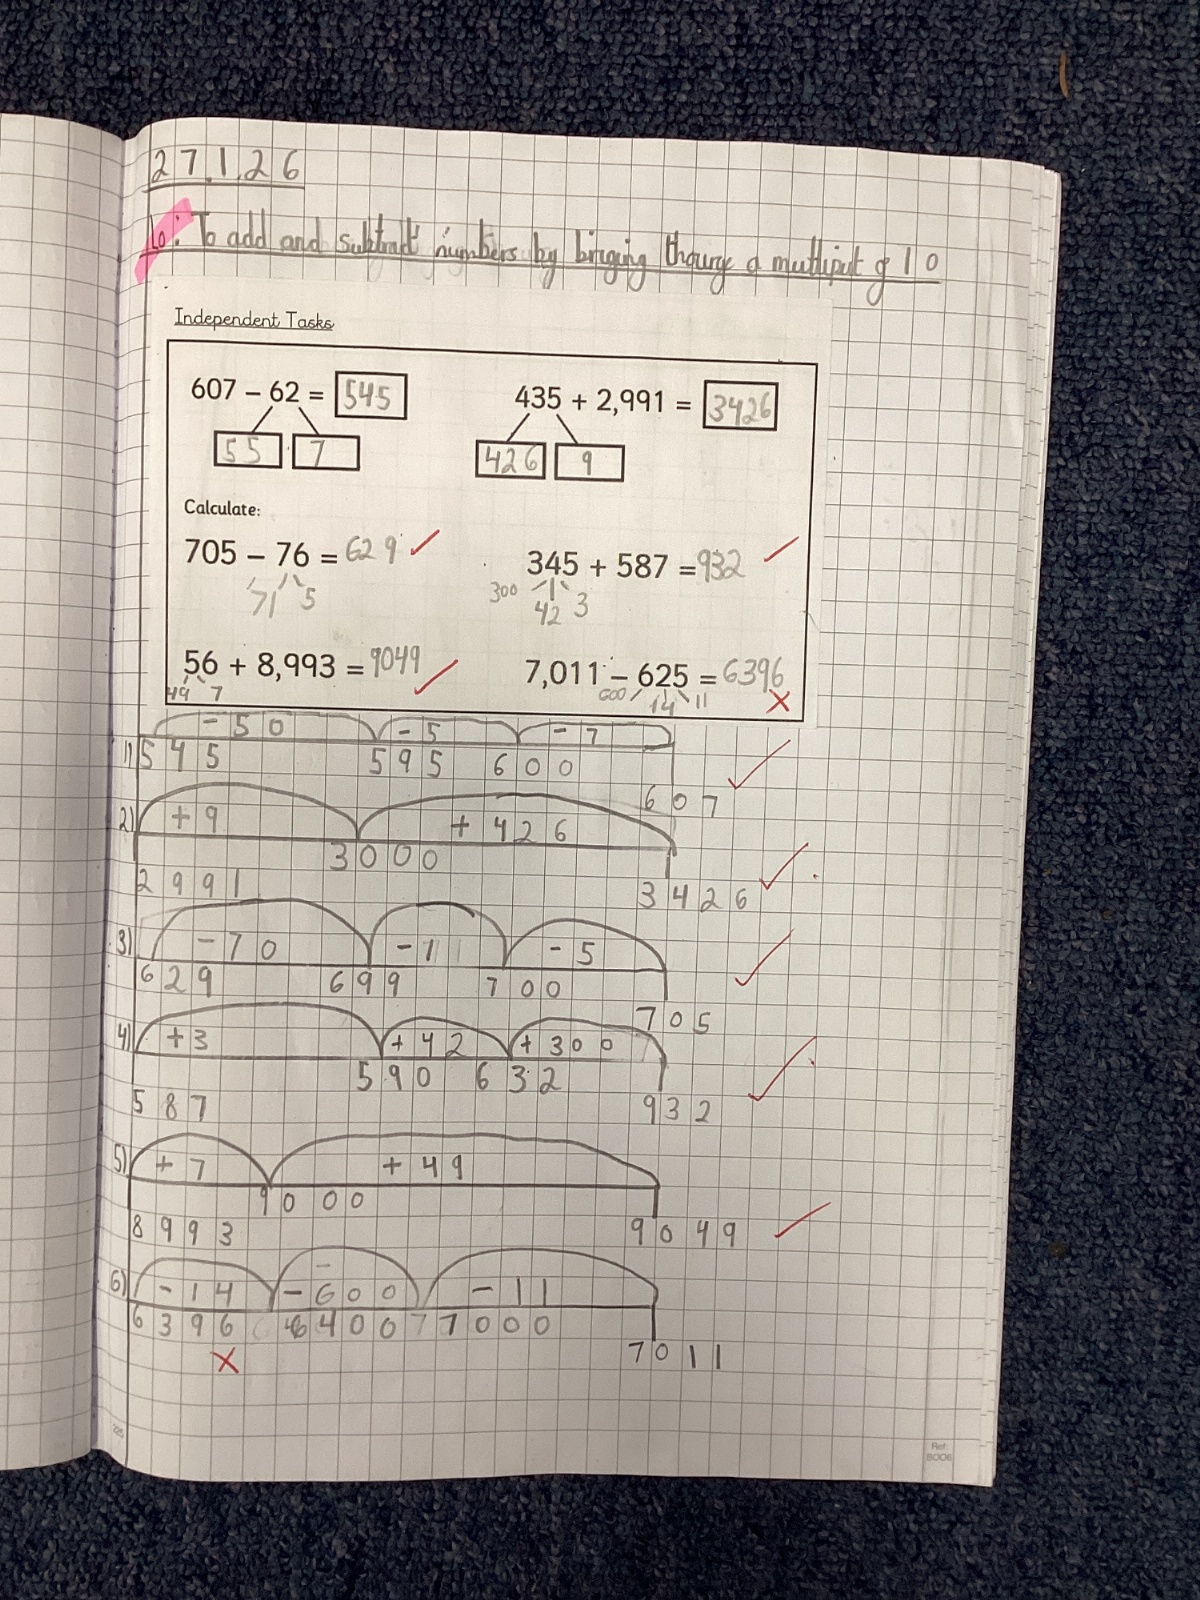 27.1.26
Lo: To add and subtract numbers by bringing thourge a multiput of 10
Independent Tasks
607 – 62 = 545
55 7
435 + 2,991 = 3426
426 9
Calculate:
705 – 76 = 629
71 5
345 + 587 = 932
300 42 3
56 + 8,993 = 9049
49 7
7,011 – 625 = 6396
600 14 11
-50 -5 -7
1) 545 595 600
607
2) +9 +426
3000
2991 3426
3) -70 -1 -5
629 699 700
705
4) +3 +42 +300
590 632
587 932
5) +7 +49
9000
8993 9049
6) -14 -600 -11
6396 6400 7000
7011
Ref:
8006